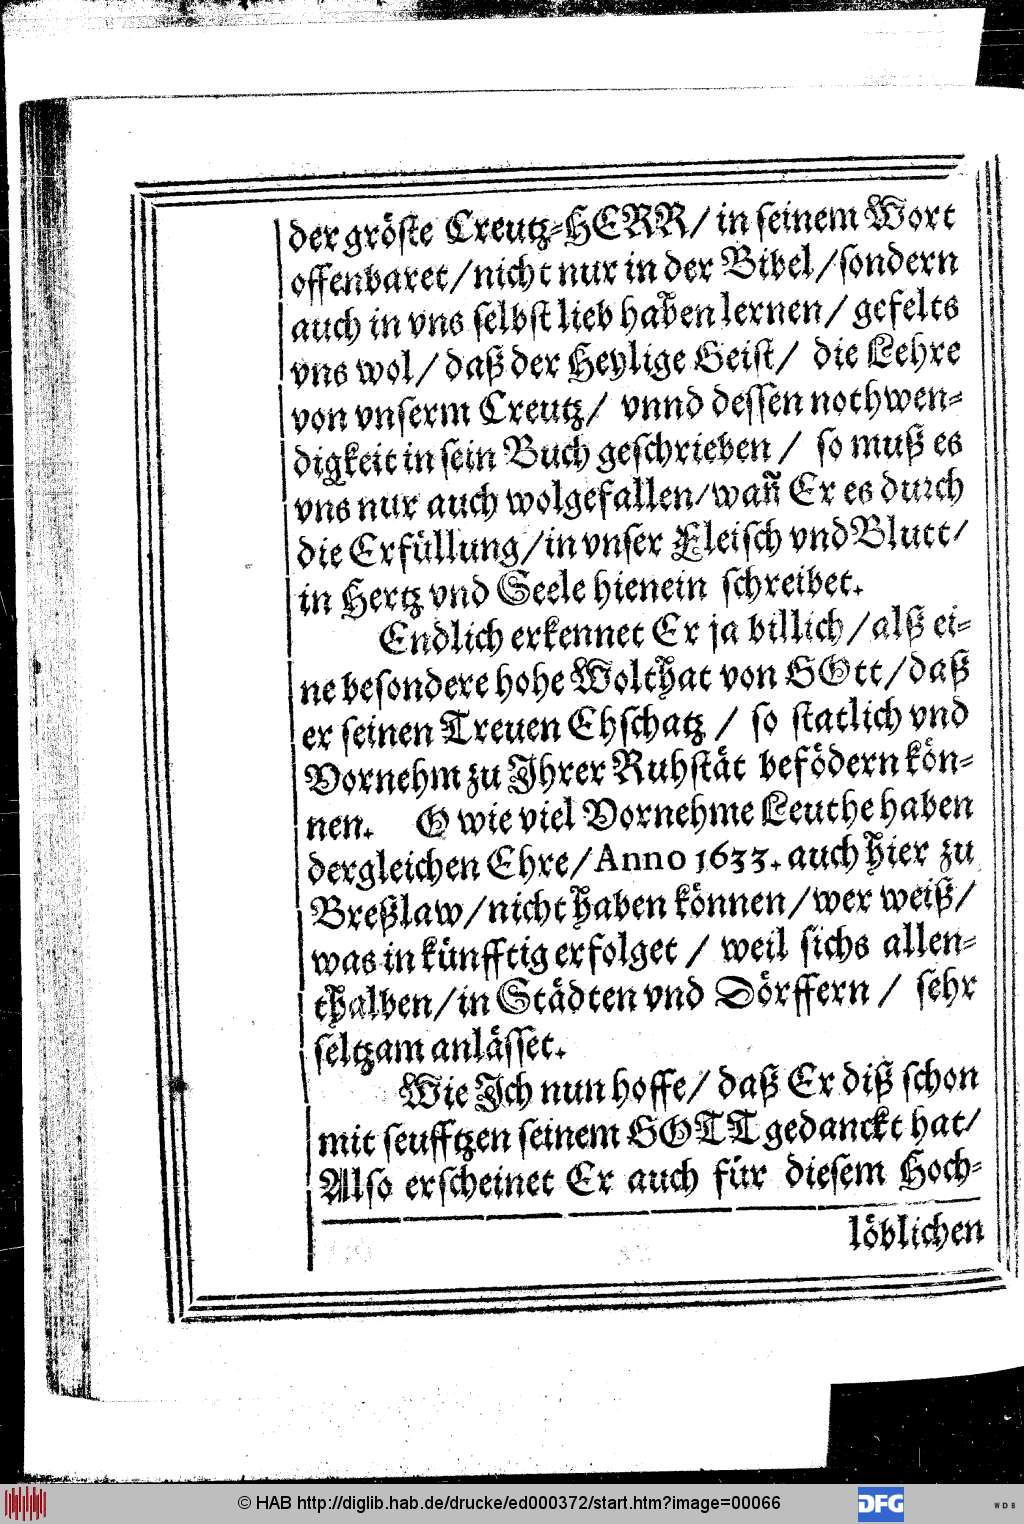 der gröſte Creutz-HERR/ in ſeinem Wort
offenbaret/nicht nur in der Bibel/ſondern
auch in vns ſelbſt lieb haben lernen/ gefelts
vns wol/ daß der Heylige Geiſt/ die Lehre
von vnſerm Creutz/ vnnd deſſen nothwen-
digkeit in ſein Buch geſchrieben / ſo muß es
vns nur auch wolgefallen/wañ Er es durch
die Erfüllung/in vnſer Fleiſch vnd Blutt/
in Hertz vnd Seele hienein ſchreibet.
Endlich erkennet Er ja billich/alß ei-
ne beſondere hohe Wolthat von GOtt/daß
er ſeinen Treuen Ehſchatz / ſo ſtatlich vnd
Vornehm zu Ihrer Ruhſtät befödern kön-
nen. O wie viel Vornehme Leuthe haben
dergleichen Ehre/Anno 1633. auch hier zu
Breßlaw/nicht haben können/wer weiß/
was in künfftig erfolget / weil ſichs allen-
thalben/in Städten vnd Dörffern / ſehr
ſeltzam anläſſet.
Wie Ich nun hoffe/ daß Er diß ſchon
mit ſeufftzen ſeinem GOTT gedanckt hat/
Alſo erſcheinet Er auch für dieſem Hoch-
löblichen
© HAB http://diglib.hab.de/drucke/ed000372/start.htm?image=00066
DFG
WDB